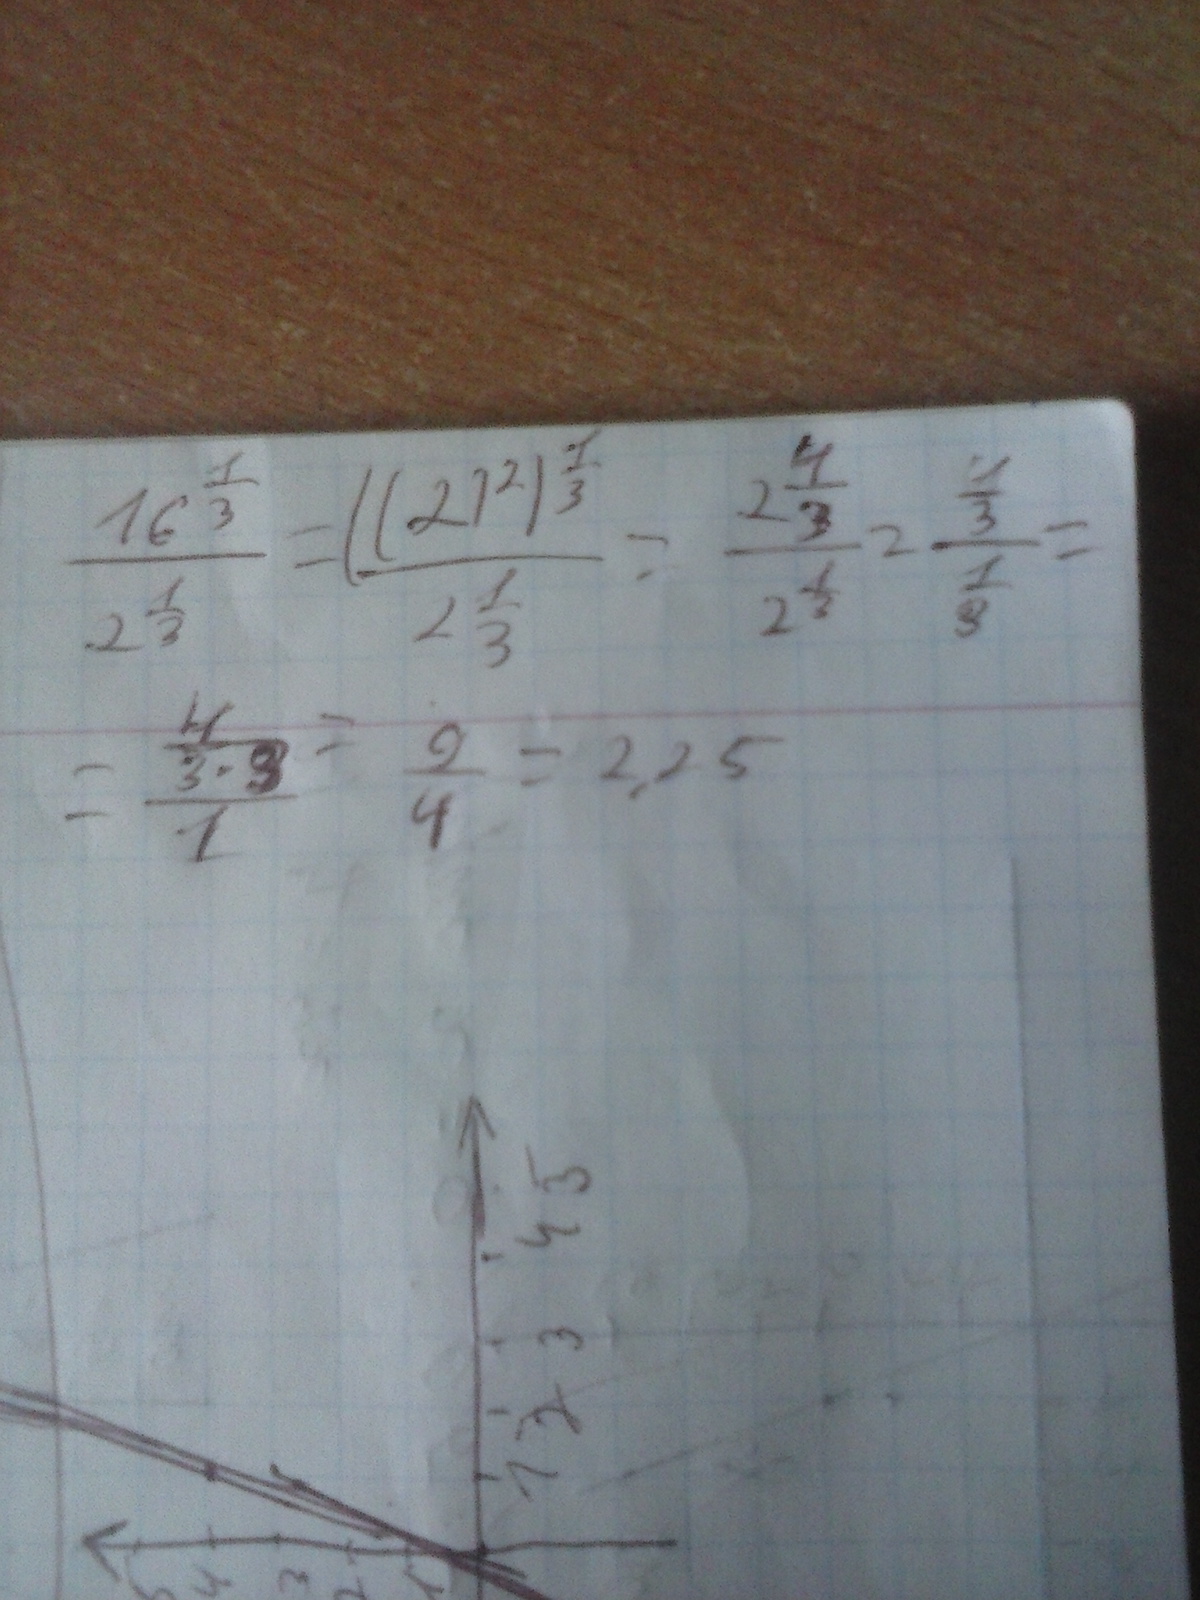 16^{1/3} / 2^{1/3} = ((2)^2)^{1/3} / 2^{1/3} = 2^{4/3} / 2^{1/3} = (4/3) / (1/3) =
= (4 / (3·3)) / 1 = 9/4 = 2,25
5
4
3
2
1
5 4 3 2 1